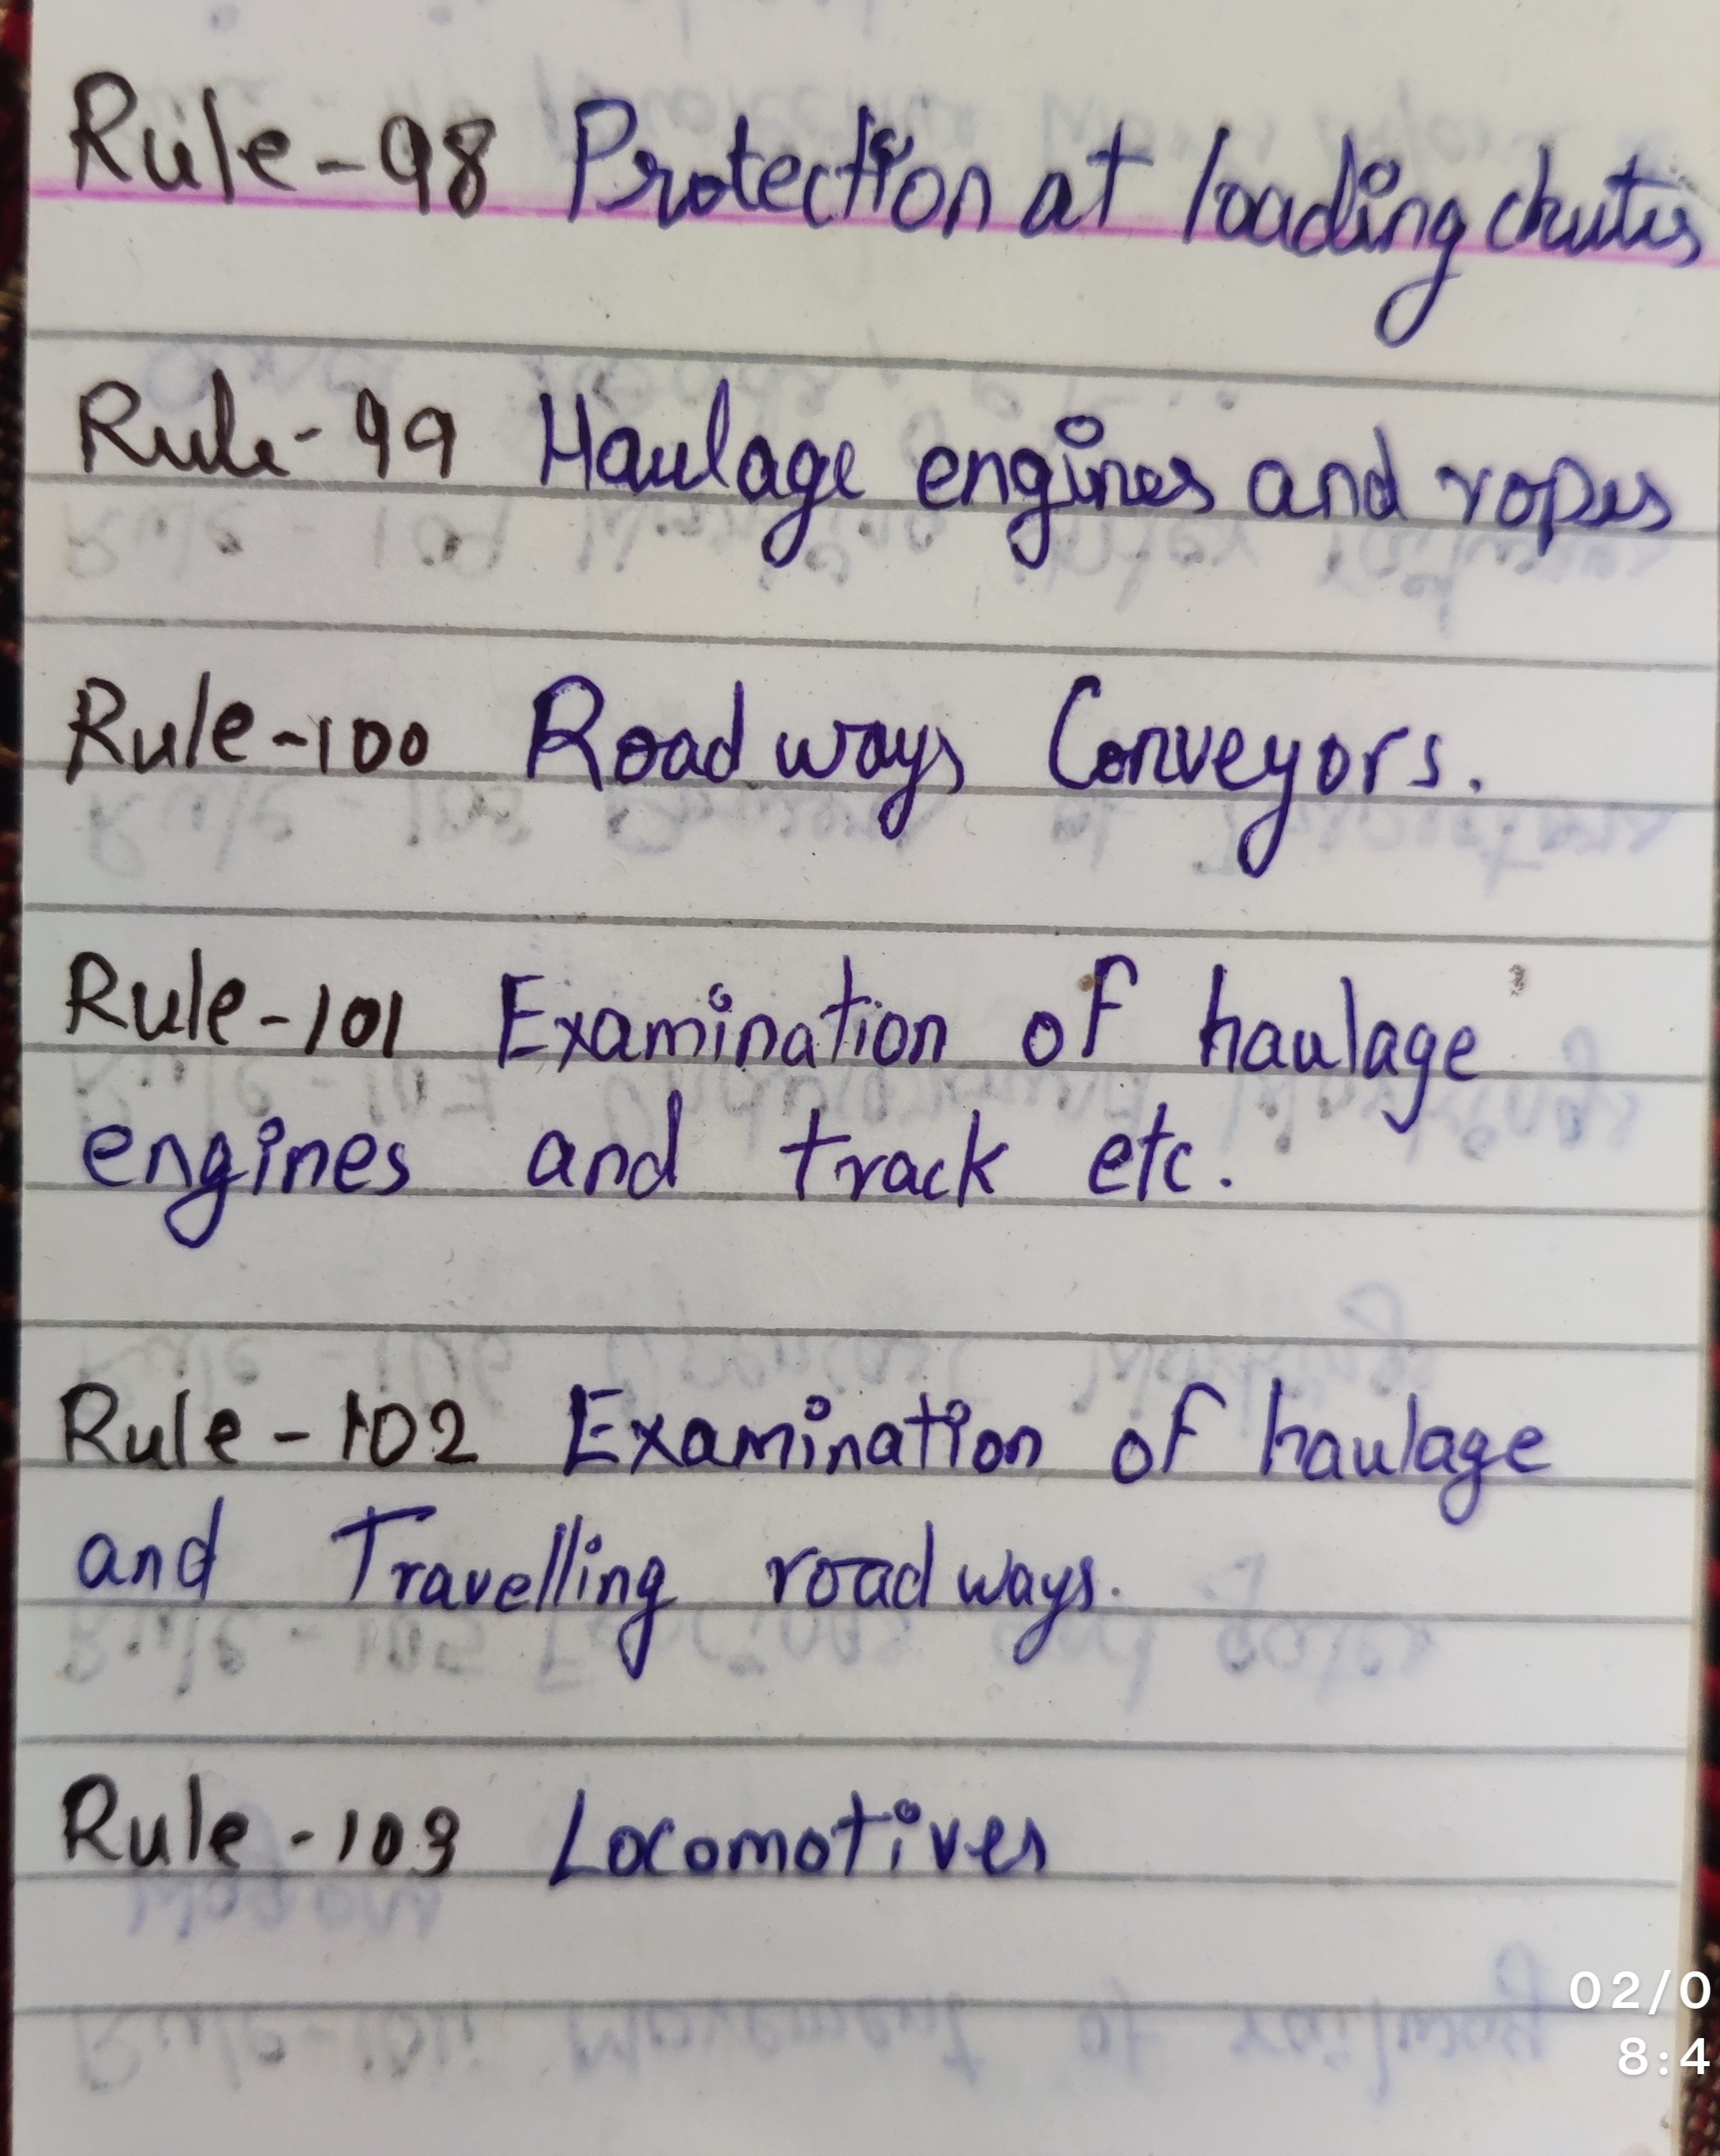 Rule-98 Protection at loading chutes
Rule-99 Haulage engines and ropes
Rule-100 Road ways Conveyors.
Rule-101 Examination of haulage
engines and track etc.
Rule-102 Examination of haulage
and Travelling road ways.
Rule-103 Locomotives
02/0
8:4